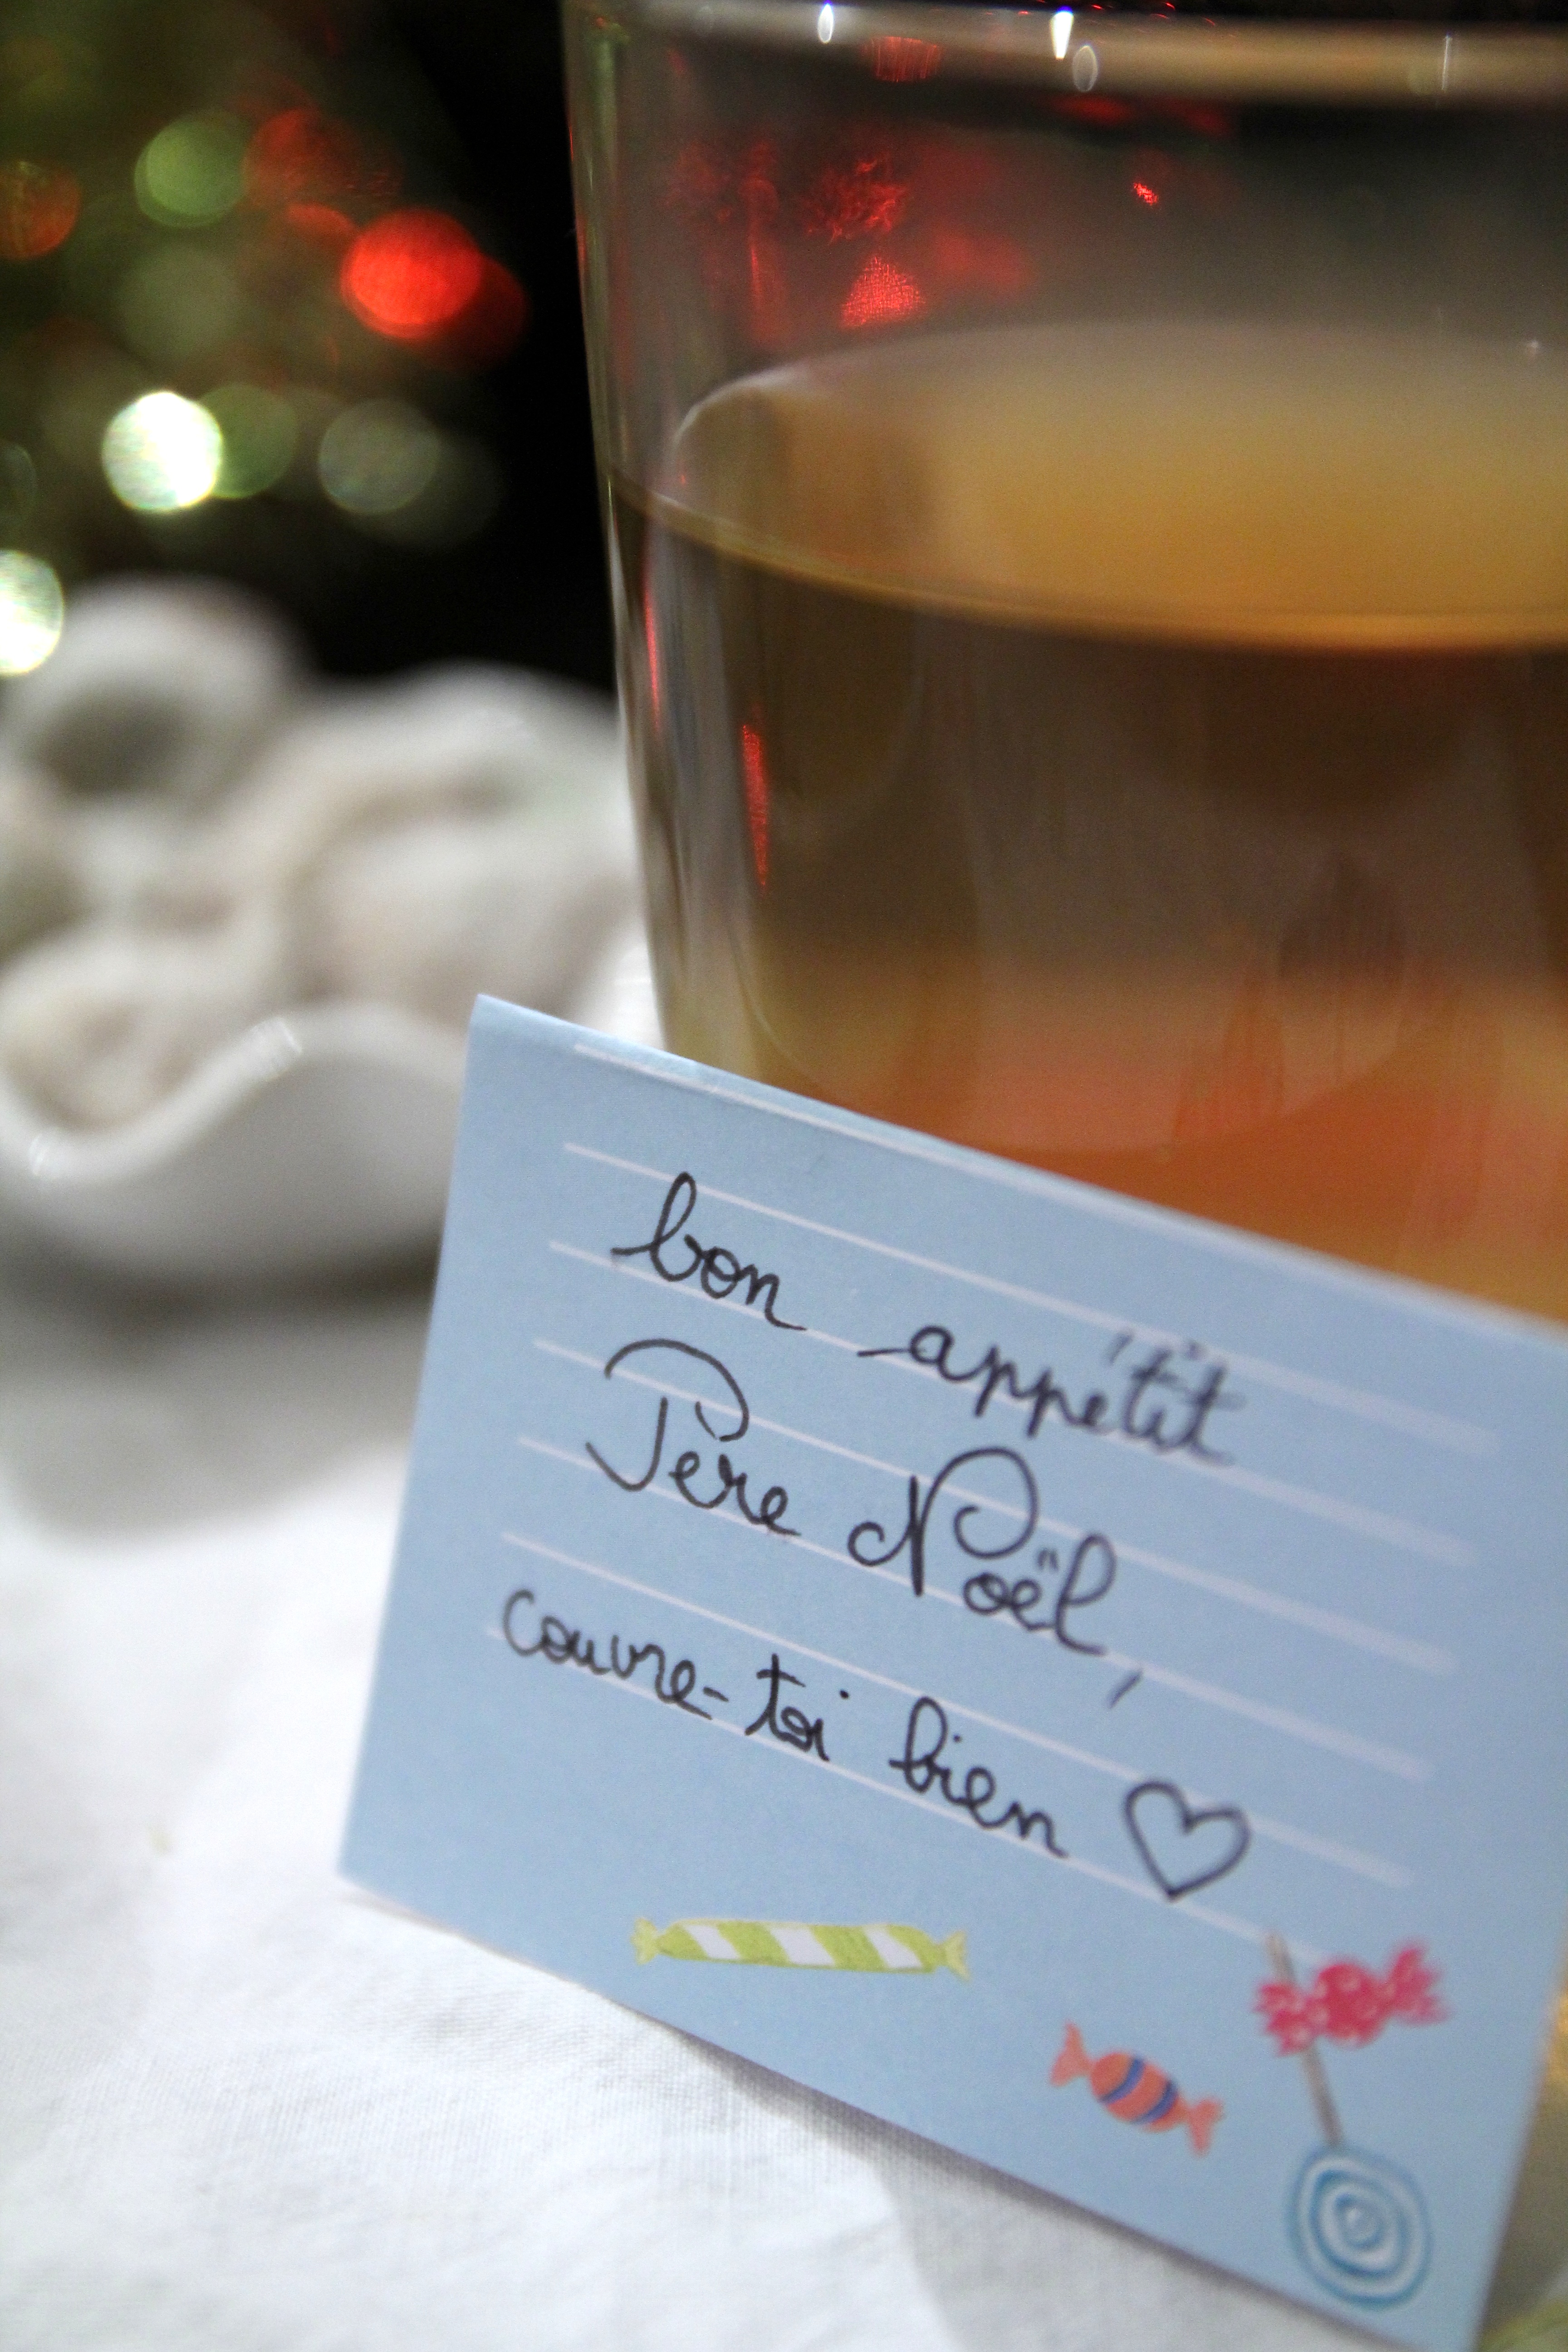 bon appétit
Père Noël,
couvre-toi bien ♡